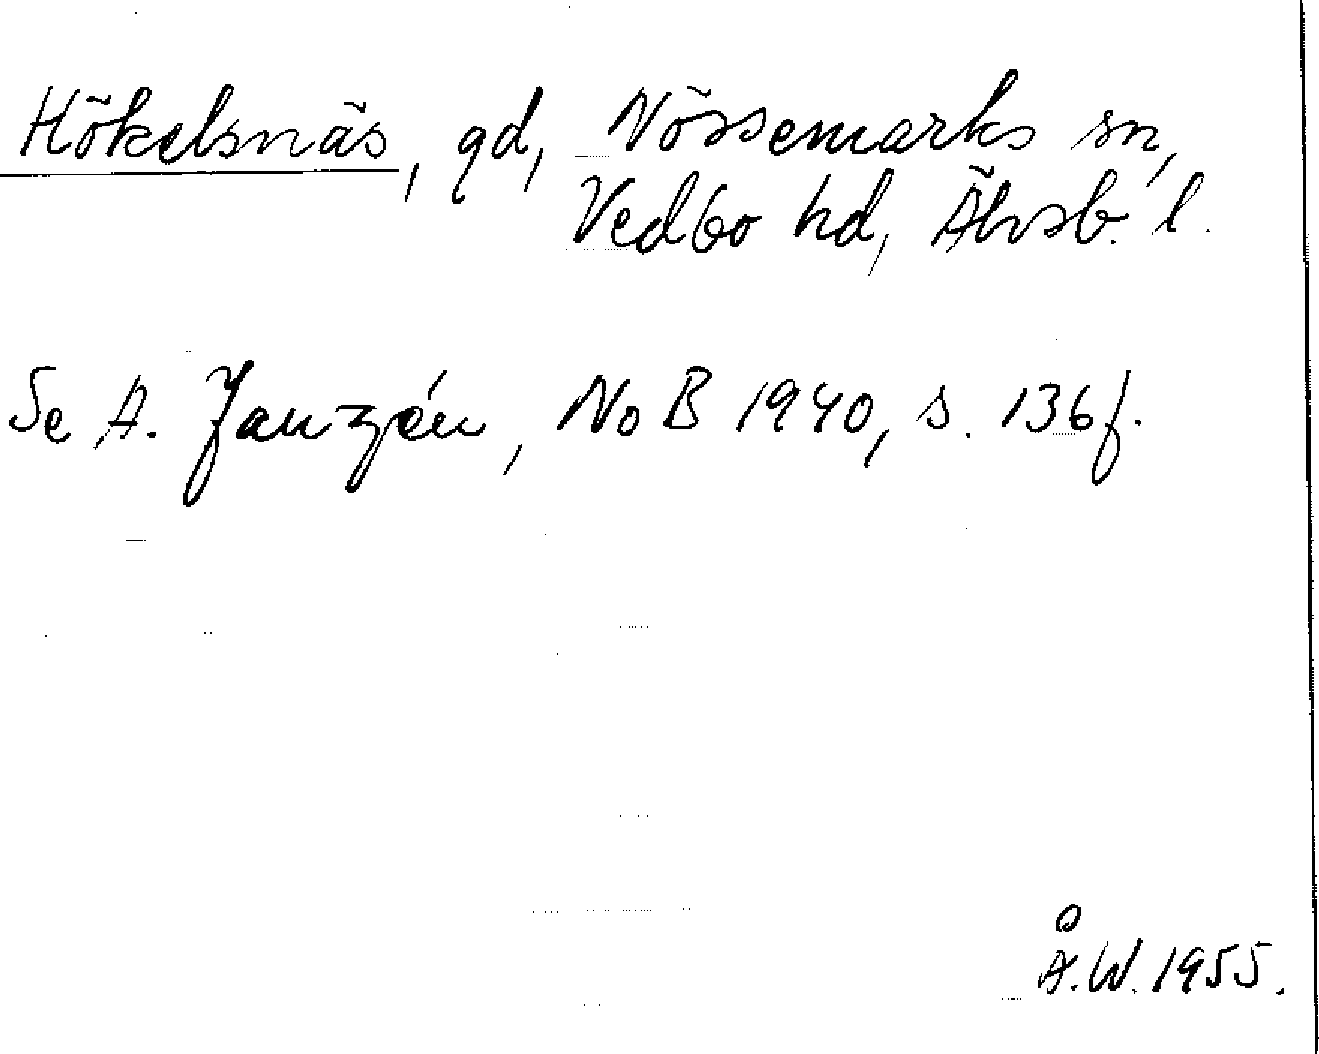 Hökelsnäs, gd, Nössemarks sn,
Vedbo hd, Älvsb. l.
Se A. Janzén, NoB 1940, s. 136f.
Å.W. 1955.